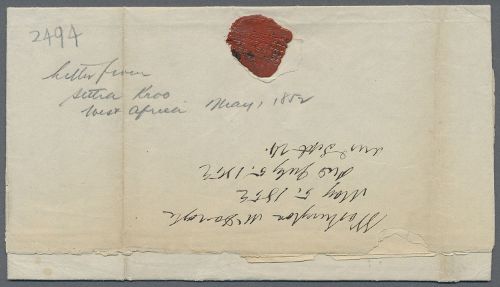 2494
Letter from
Settra Kroo
West Africa May, 1852
Washington McDonogh
May 5. 1852
Recd July 5. 1852
ans Sept 24.